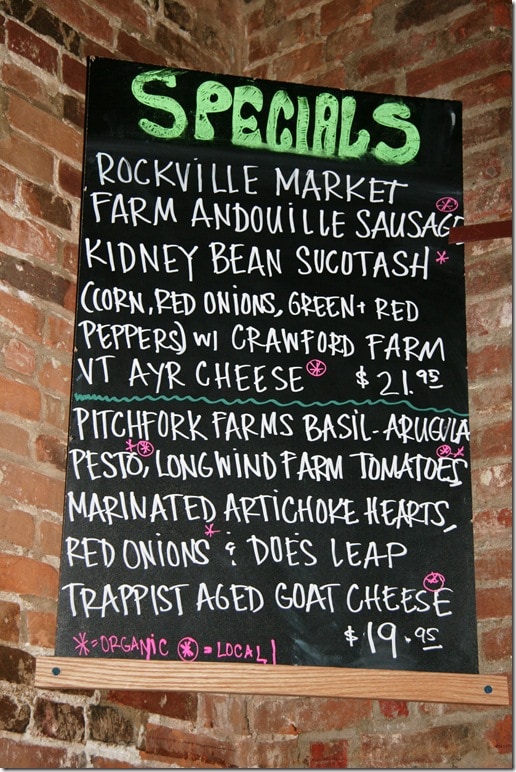 SPECIALS
ROCKVILLE MARKET
FARM ANDOUILLE SAUSAGE
KIDNEY BEAN SUCOTASH *
(CORN, RED ONIONS, GREEN + RED
PEPPERS) W/ CRAWFORD FARM
VT AYR CHEESE $21.95
PITCHFORK FARMS BASIL-ARUGULA
PESTO, LONGWIND FARM TOMATOES,
MARINATED ARTICHOKE HEARTS,
RED ONIONS * & DOES LEAP
TRAPPIST AGED GOAT CHEESE
$19.95
* = ORGANIC ⊛ = LOCAL!